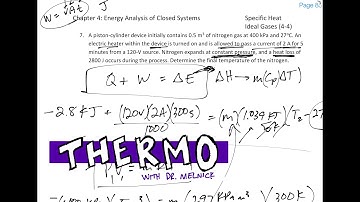 W = VAt J
Page 82
Chapter 4: Energy Analysis of Closed Systems
Specific Heat
Ideal Gases (4-4)
7. A piston-cylinder device initially contains 0.5 m³ of nitrogen gas at 400 kPa and 27°C. An
electric heater within the device is turned on and is allowed to pass a current of 2 A for 5
minutes from a 120-V source. Nitrogen expands at constant pressure, and a heat loss of
2800 J occurs during the process. Determine the final temperature of the nitrogen.
Q + W = ΔE ΔH → m(Cp ΔT)
-2.8 kJ + (120V)(2A)(300s) = (m)(1.039 kJ)(T2 - 27
1000
THERMO
WITH DR. MELNICK
m (.297 kPa m³)(300K)